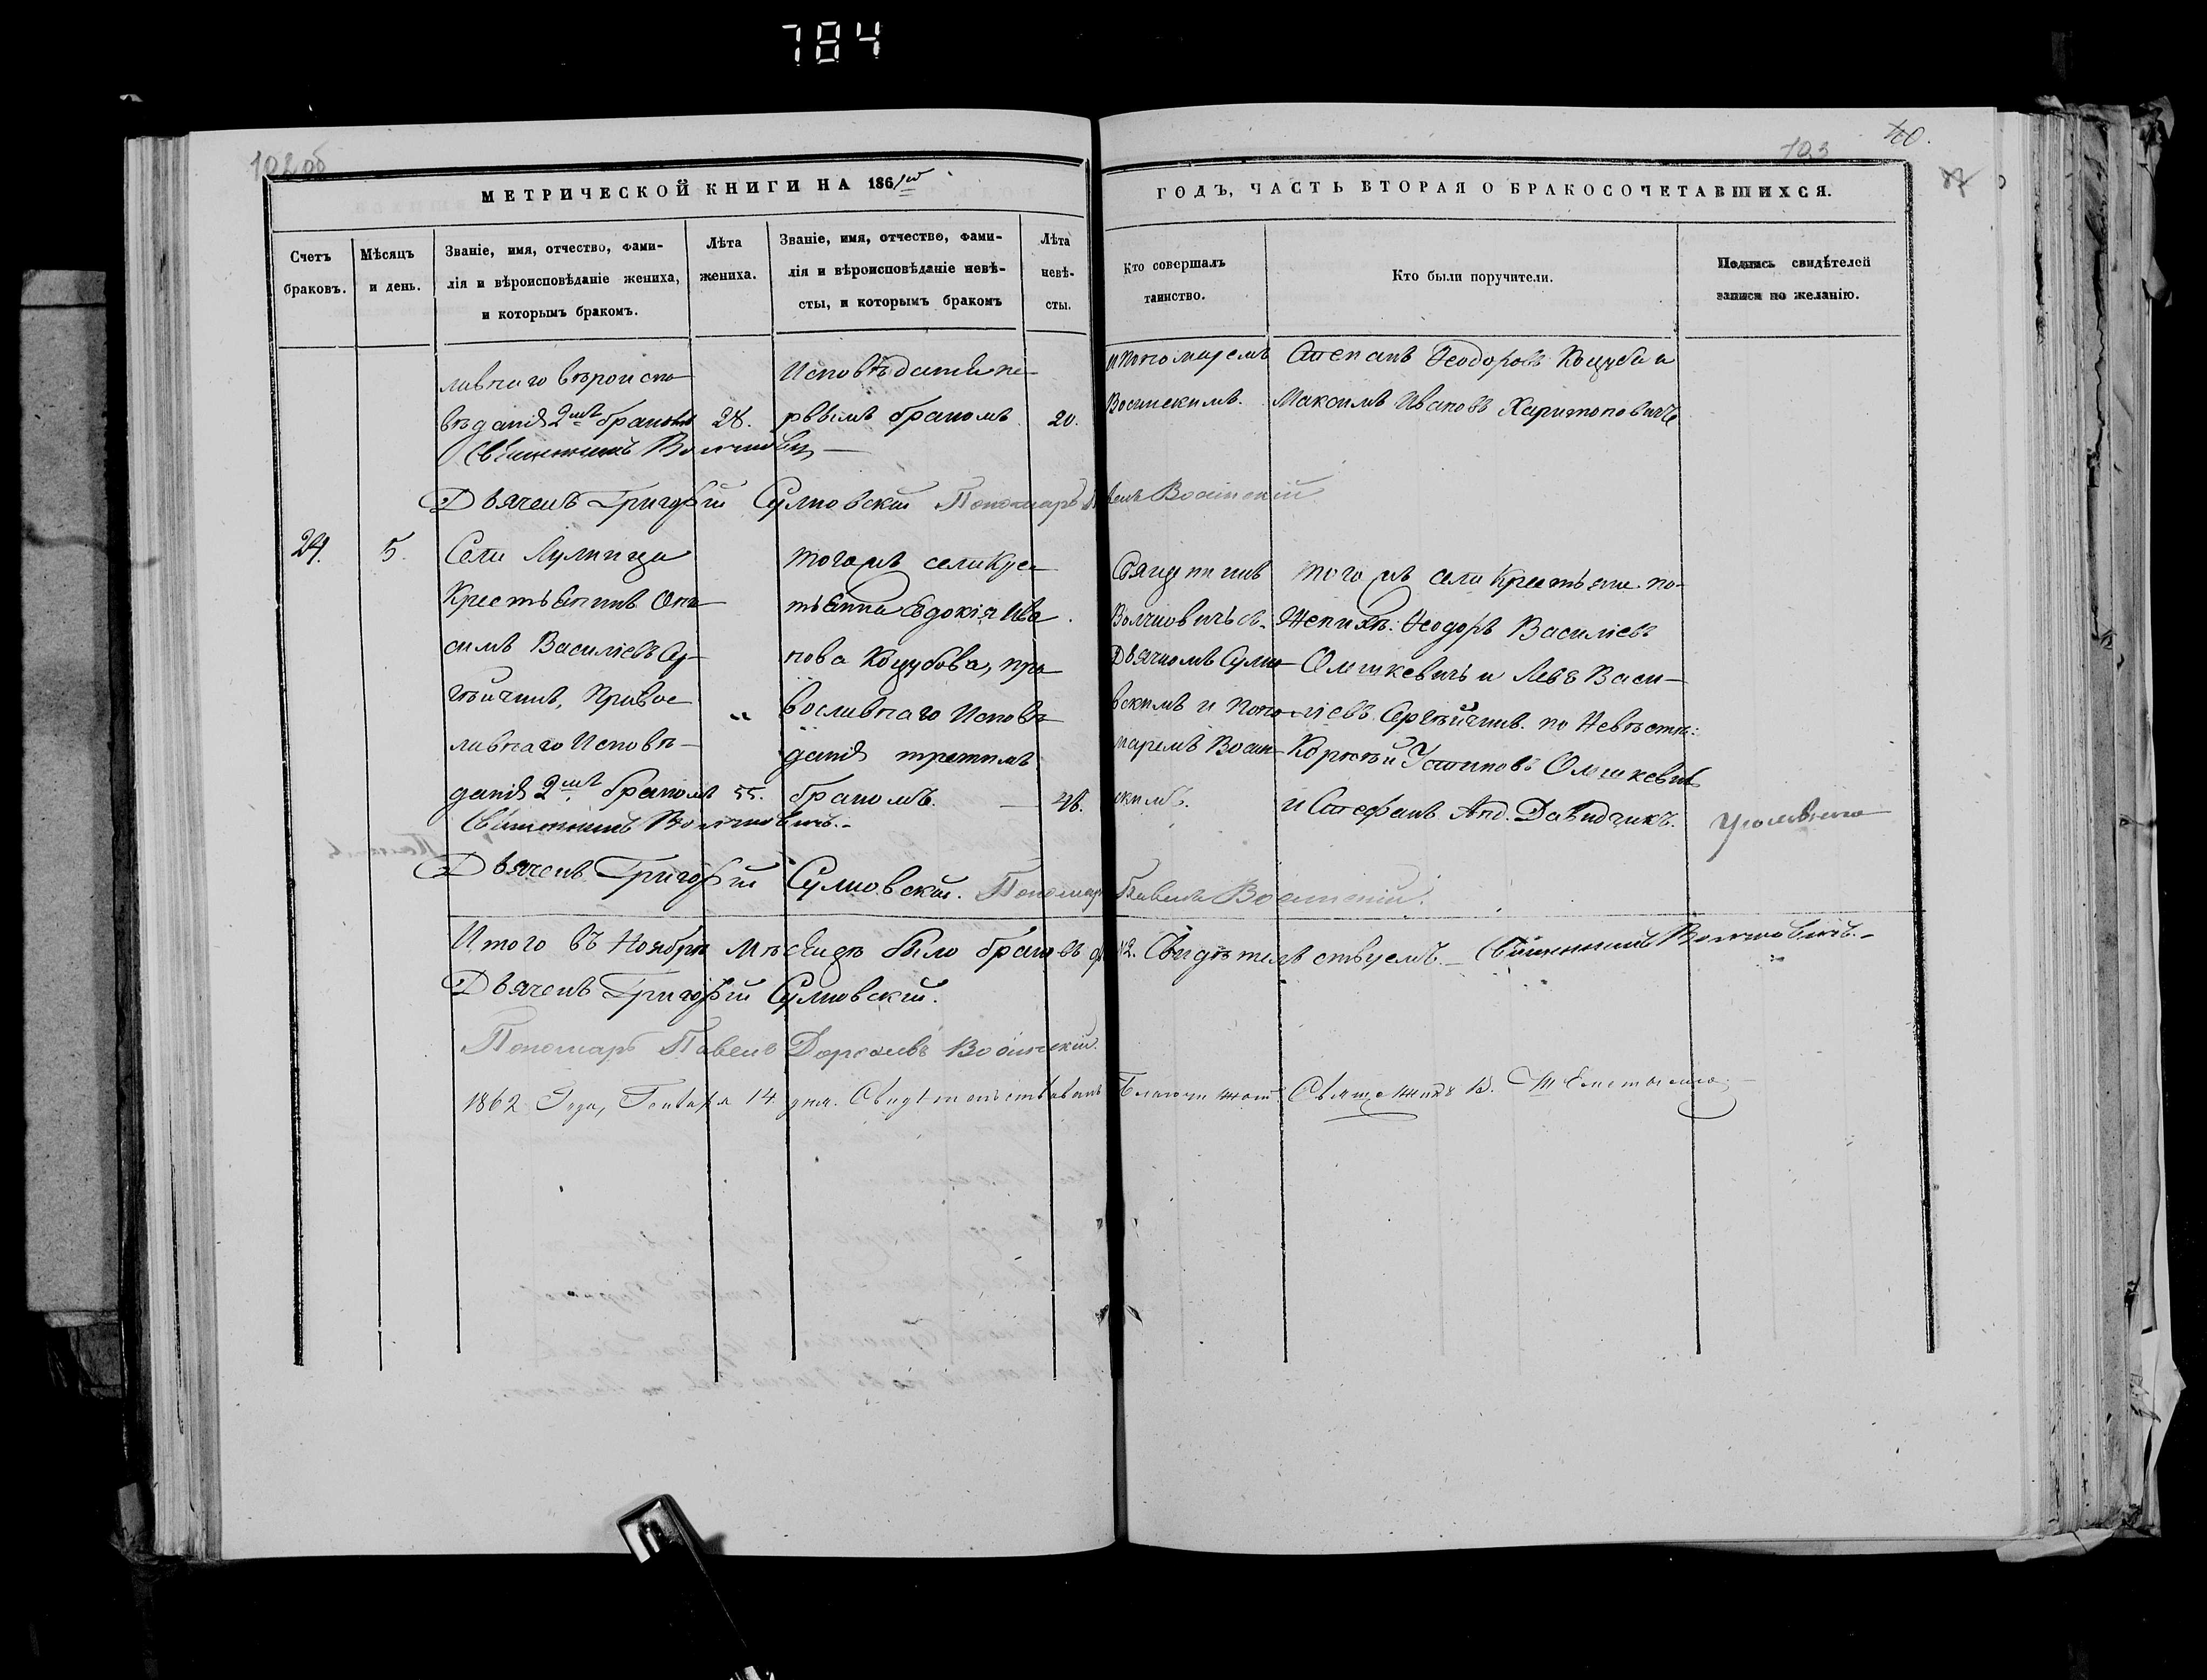 784
102 об
103
40.
МЕТРИЧЕСКОЙ КНИГИ НА 1861го
ГОДЪ, ЧАСТЬ ВТОРАЯ О БРАКОСОЧЕТАВШИХСЯ.
Счетъ браковъ.
Мѣсяцъ и день.
Званіе, имя, отчество, фами-
лія и вѣроисповѣданіе жениха,
и которымъ бракомъ.
Лѣта жениха.
Званіе, имя, отчество, фами-
лія и вѣроисповѣданіе невѣ-
сты, и которымъ бракомъ
Лѣта невѣ-
сты.
Кто совершалъ
таинство.
Кто были поручители.
Подпись свидѣтелей
записи по желанію.
лавнаго вѣроиспо-
вѣданія 2мъ бракомъ
28.
Исповѣданія пе-
рвымъ бракомъ
20.
и Пономаремъ
Воинскимъ.
Степанъ Ѳеодоровъ Коцуба и
Максимъ Ивановъ Харитоновичъ
Священникъ
Дьячекъ Григорій Сулковскій Пономарь Павелъ Воинскій
24.
5.
Села
Крестьянинъ Они-
симъ Василіевъ Сер-
гѣйчикъ, Правос-
лавнаго Исповѣ-
данія 2мъ бракомъ
55.
тогожъ села Крес-
тьянка Евдокія Ива-
нова Коцубова, пра-
вославнаго Исповѣ-
данія третимъ
бракомъ.
Священникъ
съ
Дьячкомъ Сулко-
вскимъ и Поно-
маремъ Воин-
скимъ.
тогожъ села Крестьяне по
Женихѣ: Ѳеодоръ Василіевъ
Олешкевичъ и Левъ Васи-
ліевъ Сергѣйчикъ. по Невѣстѣ:
Корнѣй Устиновъ Олешкевичъ
и Стефанъ Анд. Давидчикъ.
Священникъ
Дьячекъ Григорій Сулковскій. Пономарь Павелъ Воинскій.
Итого въ Ноябрѣ мѣсяцѣ было браковъ 2. Свидѣтельствуемъ. Священникъ
Дьячекъ Григорій Сулковскій.
Пономарь Павелъ Воинскій.
1862 Года, Генваря 14 дня. Свидѣтельствовалъ Благочинный Священникъ В.